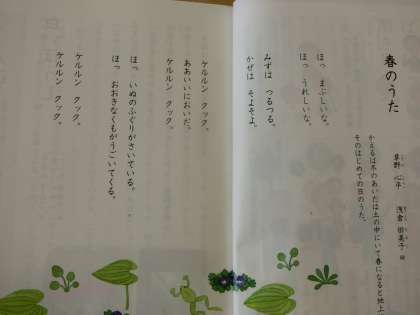 春のうた
草野 心平
浅倉 田美子 絵
かえるは冬のあいだは土の中にいて春になると地上
そのはじめての日のうた。
ほっ まぶしいな。
ほっ うれしいな。
みずは つるつる。
かぜは そよそよ。
ケルルン クック。
ああいいにおいだ。
ケルルン クック。
ほっ いぬのふぐりがさいている。
ほっ おおきなくもがうごいてくる。
ケルルン クック。
ケルルン クック。